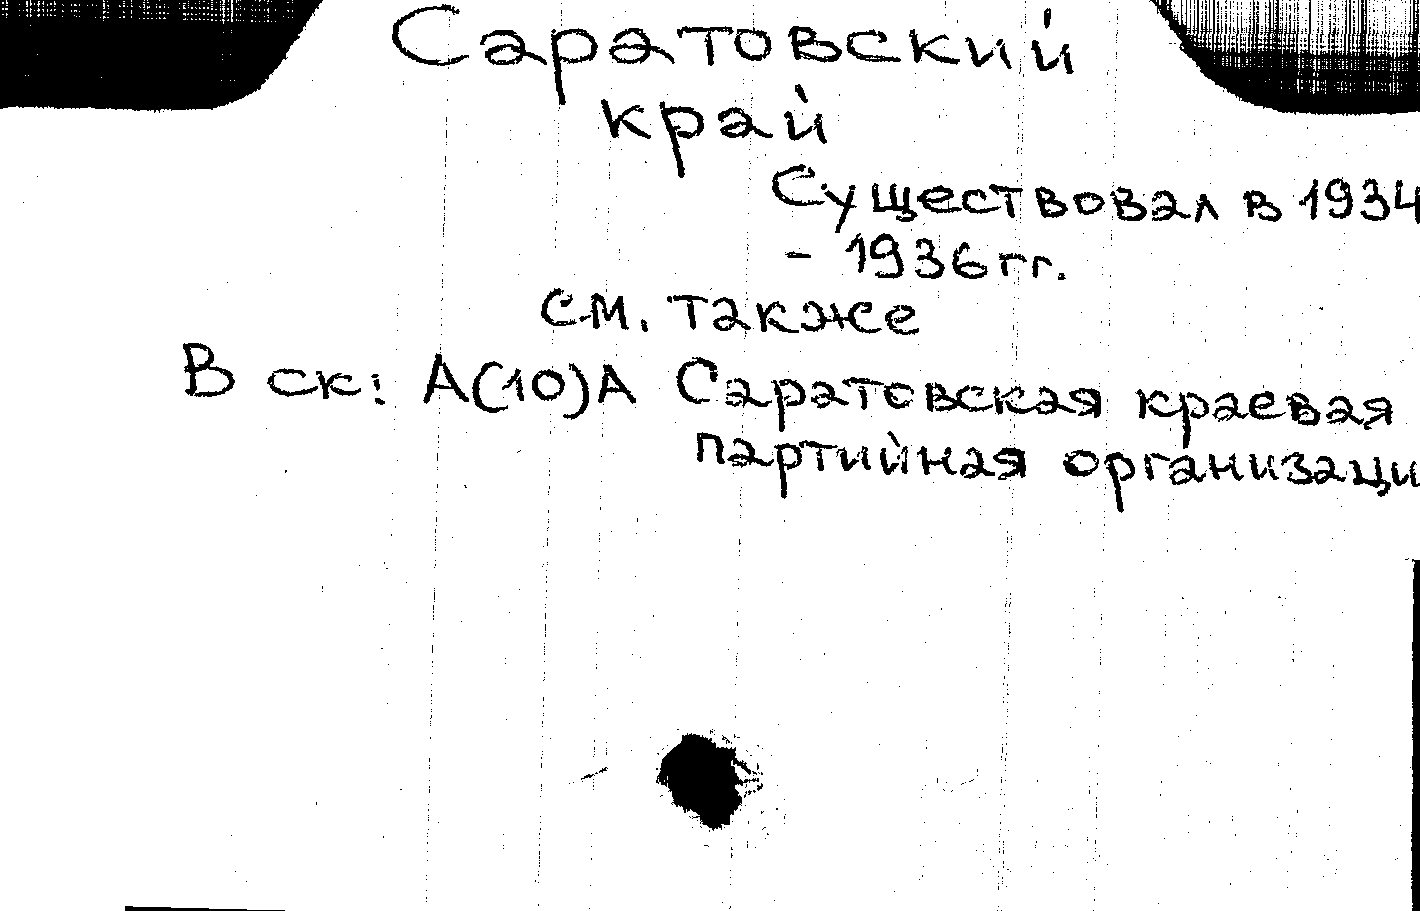 Саратовский
край
Существовал в 1934
- 1936 гг.
см. также
В ск: А(10)А Саратовская краевая
партийная организаци